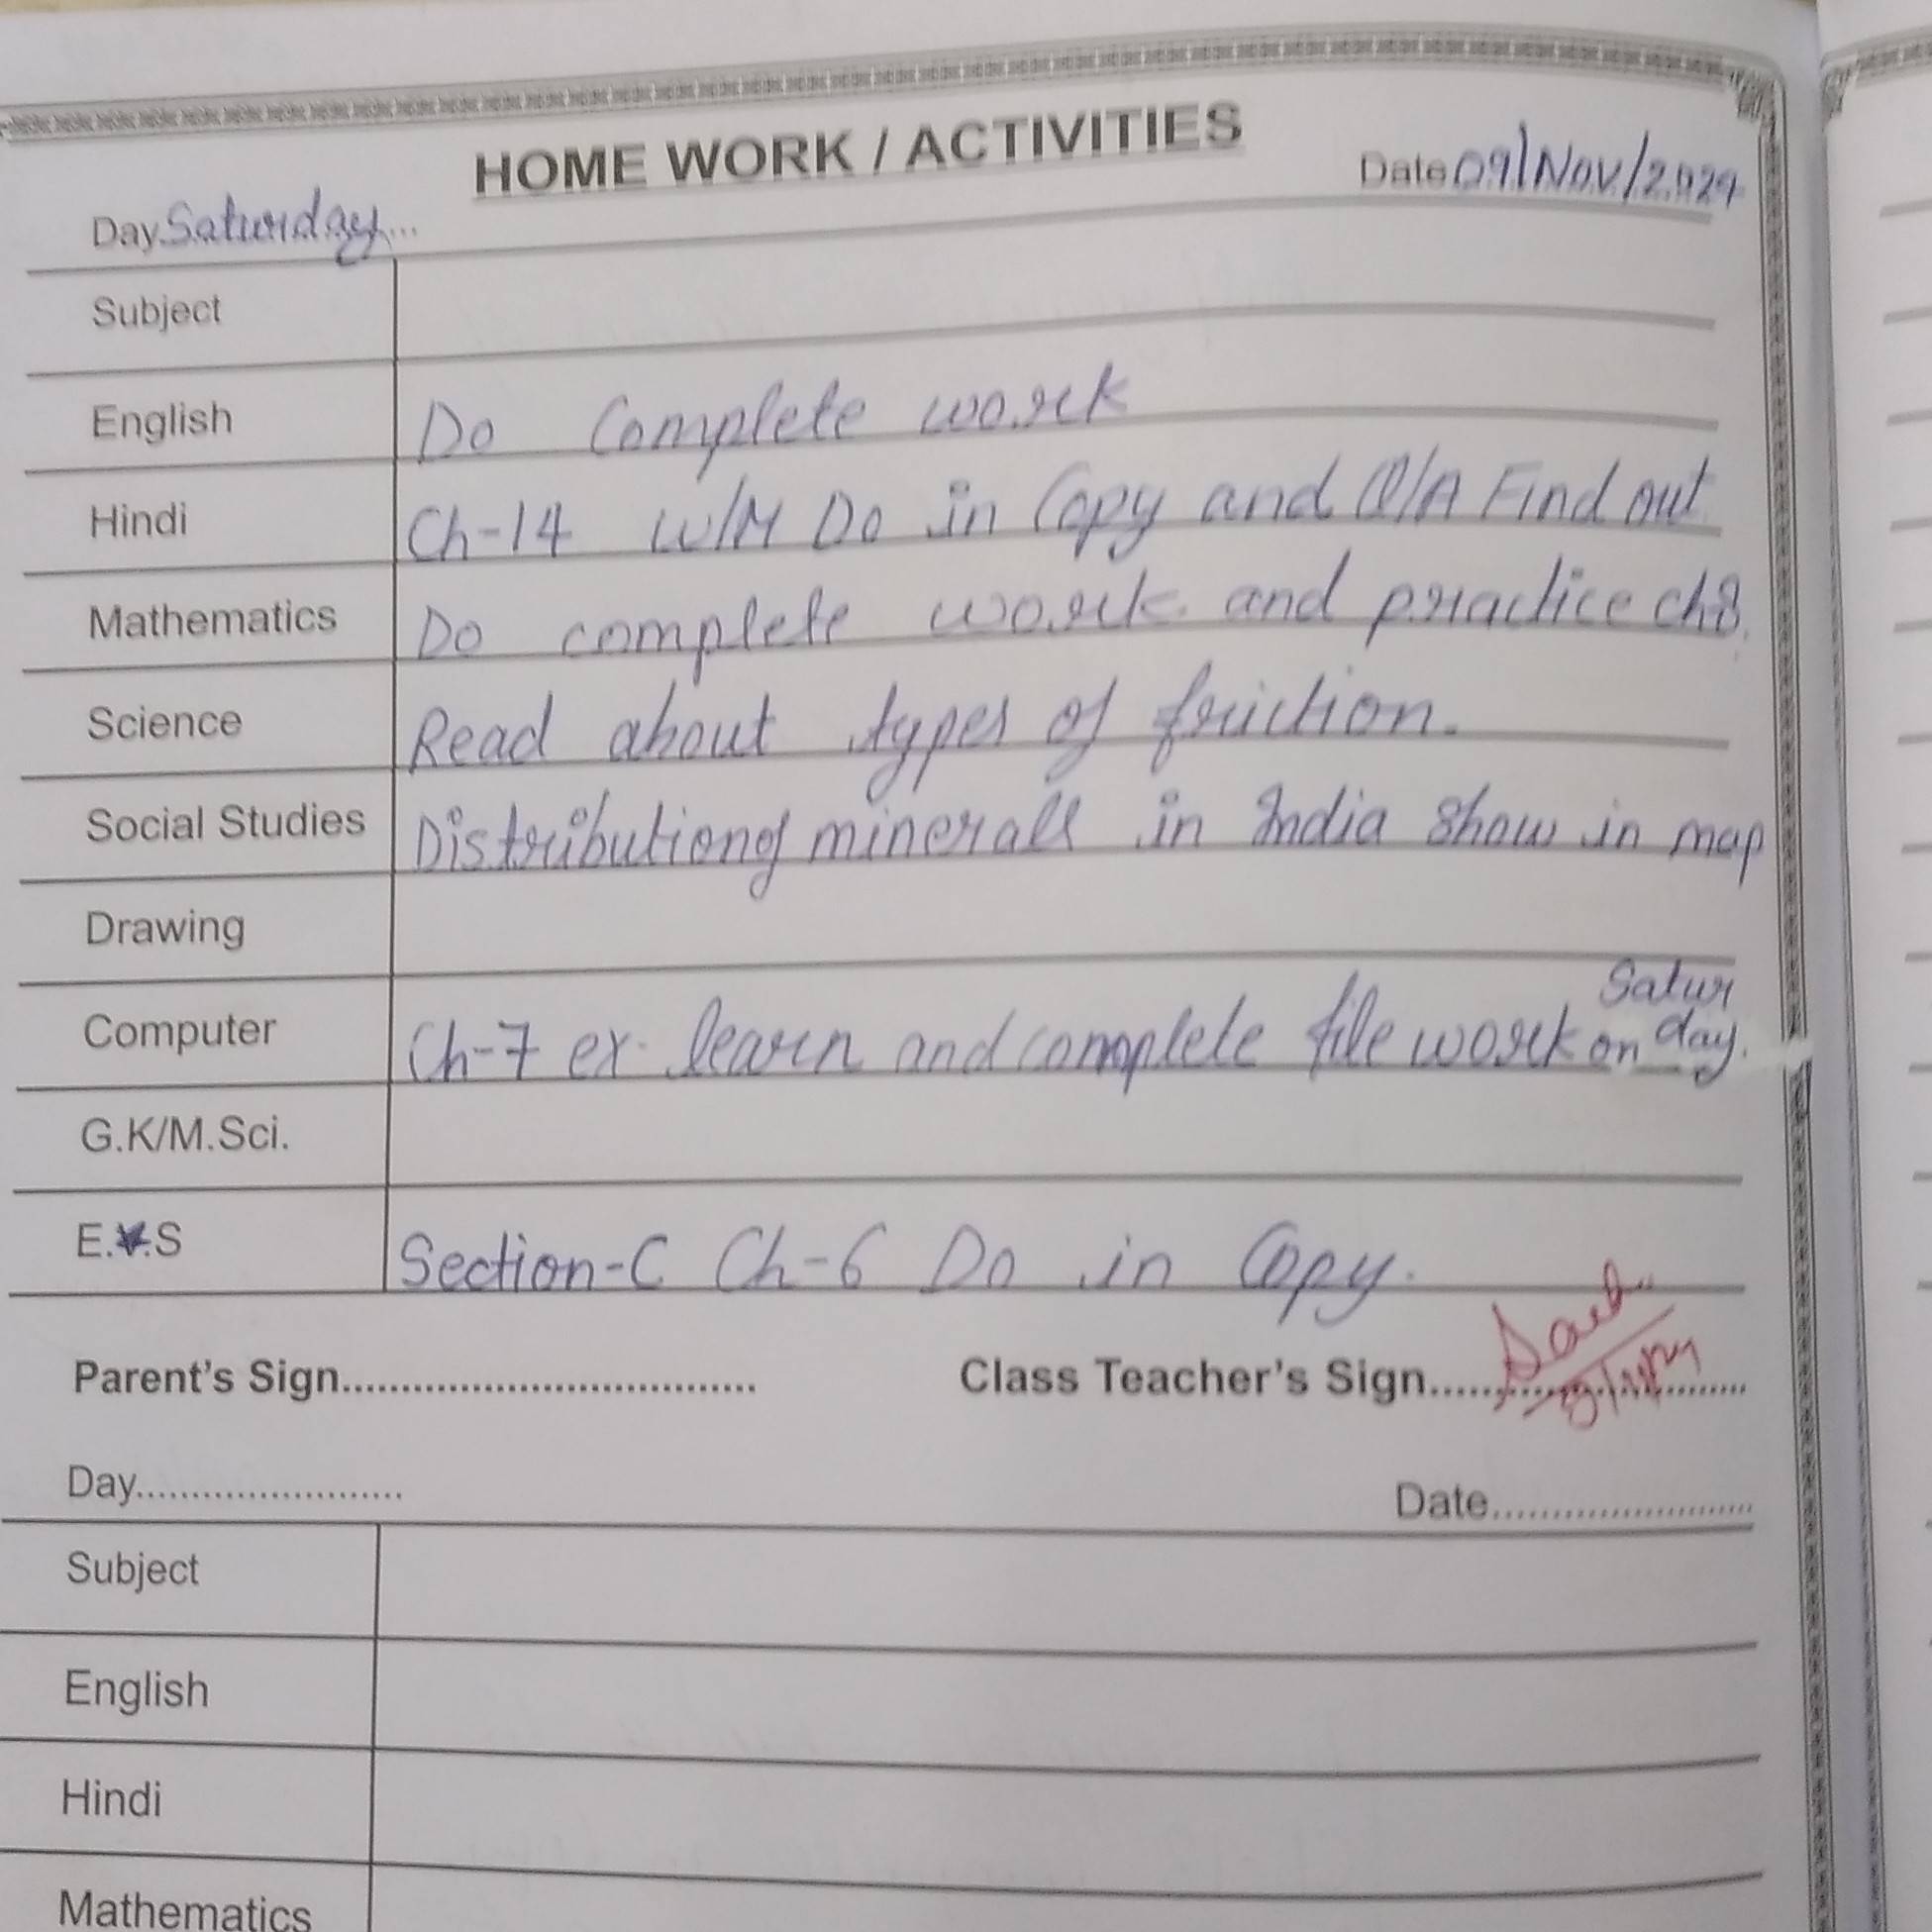 HOME WORK / ACTIVITIES
Day Saturday... Date 09/Nov/2024
Subject
English Do Complete work
Hindi Ch-14 W/M Do in Copy and Q/A Find out
Mathematics Do complete work and practice ch8.
Science Read about types of friction.
Social Studies Distribution of minerals in India show in map
Drawing
Computer Ch-7 ex. learn and complete file work on Satur day.
G.K/M.Sci.
E.V.S Section-C Ch-6 Do in Copy.
Parent's Sign................................... Class Teacher's Sign..........................
Day........................ Date........................
Subject
English
Hindi
Mathematics